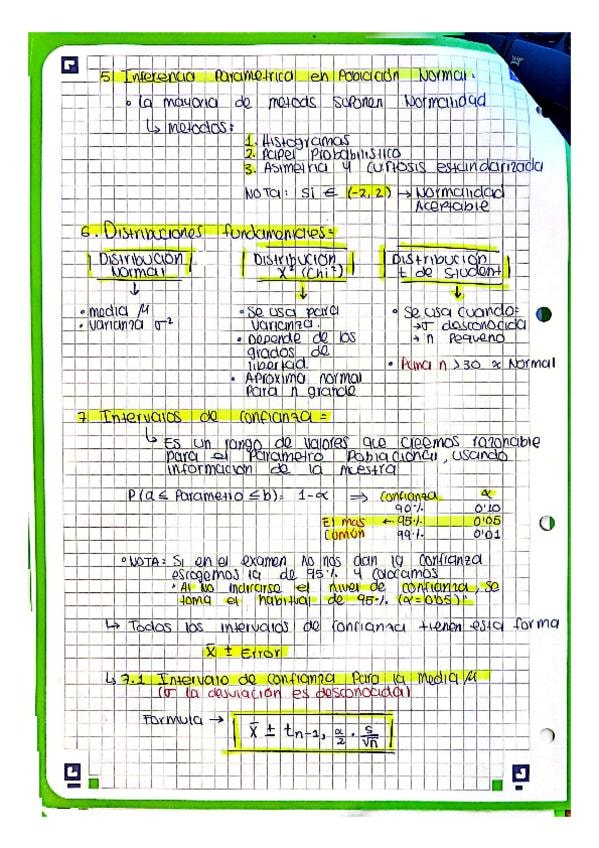 5. Inferencia Parametrica en Población Normal.
• La mayoria de metods suponen Normalidad
↳ metodos:
1. Histogramas
2. Papel Probabilistico
3. Asimetria y curtosis estandarizada
NOTA: Si ∈ (-2, 2) → Normalidad
Aceptable
6. Distribuciones fundamentales=
Distribución Normal
Distribución χ² (Chi²)
Distribución t de Student
• media μ
• varianza σ²
• Se usa para
varianza.
• Depende de los
grados de
libertad.
• Aproxima normal
Para n grande
• Se usa cuando=
→ σ desconocida
→ n pequeño
• Para n > 30 ≈ Normal
7. Intervalos de confianza =
↳ Es un rango de valores que creemos razonable
para el Parametro Poblacional, usando
informacion de la muestra
P(a ≤ Parametro ≤ b) = 1-α ⇒ confianza α
90% 0'10
El mas ← 95% 0'05
común 99% 0'01
• NOTA: Si en el examen no nos dan la confianza
escogemos la de 95% y colocamos
"Al no indicarse el nivel de confianza, se
toma el habitual de 95% (α=0'05)"
↳ Todos los intervalos de confianza tienen esta forma
x̄ ± Error
↳ 7.1 Intervalo de confianza Para la media μ
(σ la desviación es desconocida)
Formula → x̄ ± tn-1, α/2 · s/√n